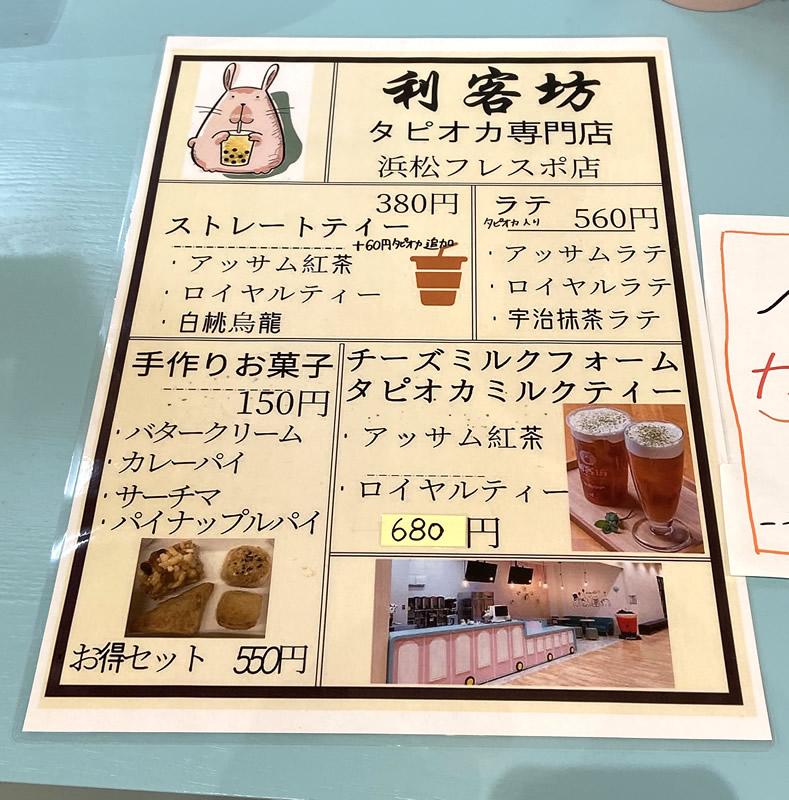 利客坊
タピオカ専門店
浜松フレスポ店
380円
ストレートティー
+60円タピオカ追加
・アッサム紅茶
・ロイヤルティー
・白桃烏龍
ラテ
タピオカ入り
560円
・アッサムラテ
・ロイヤルラテ
・宇治抹茶ラテ
手作りお菓子
150円
・バタークリーム
・カレーパイ
・サーチマ
・パイナップルパイ
お得セット 550円
チーズミルクフォーム
タピオカミルクティー
・アッサム紅茶
・ロイヤルティー
680円